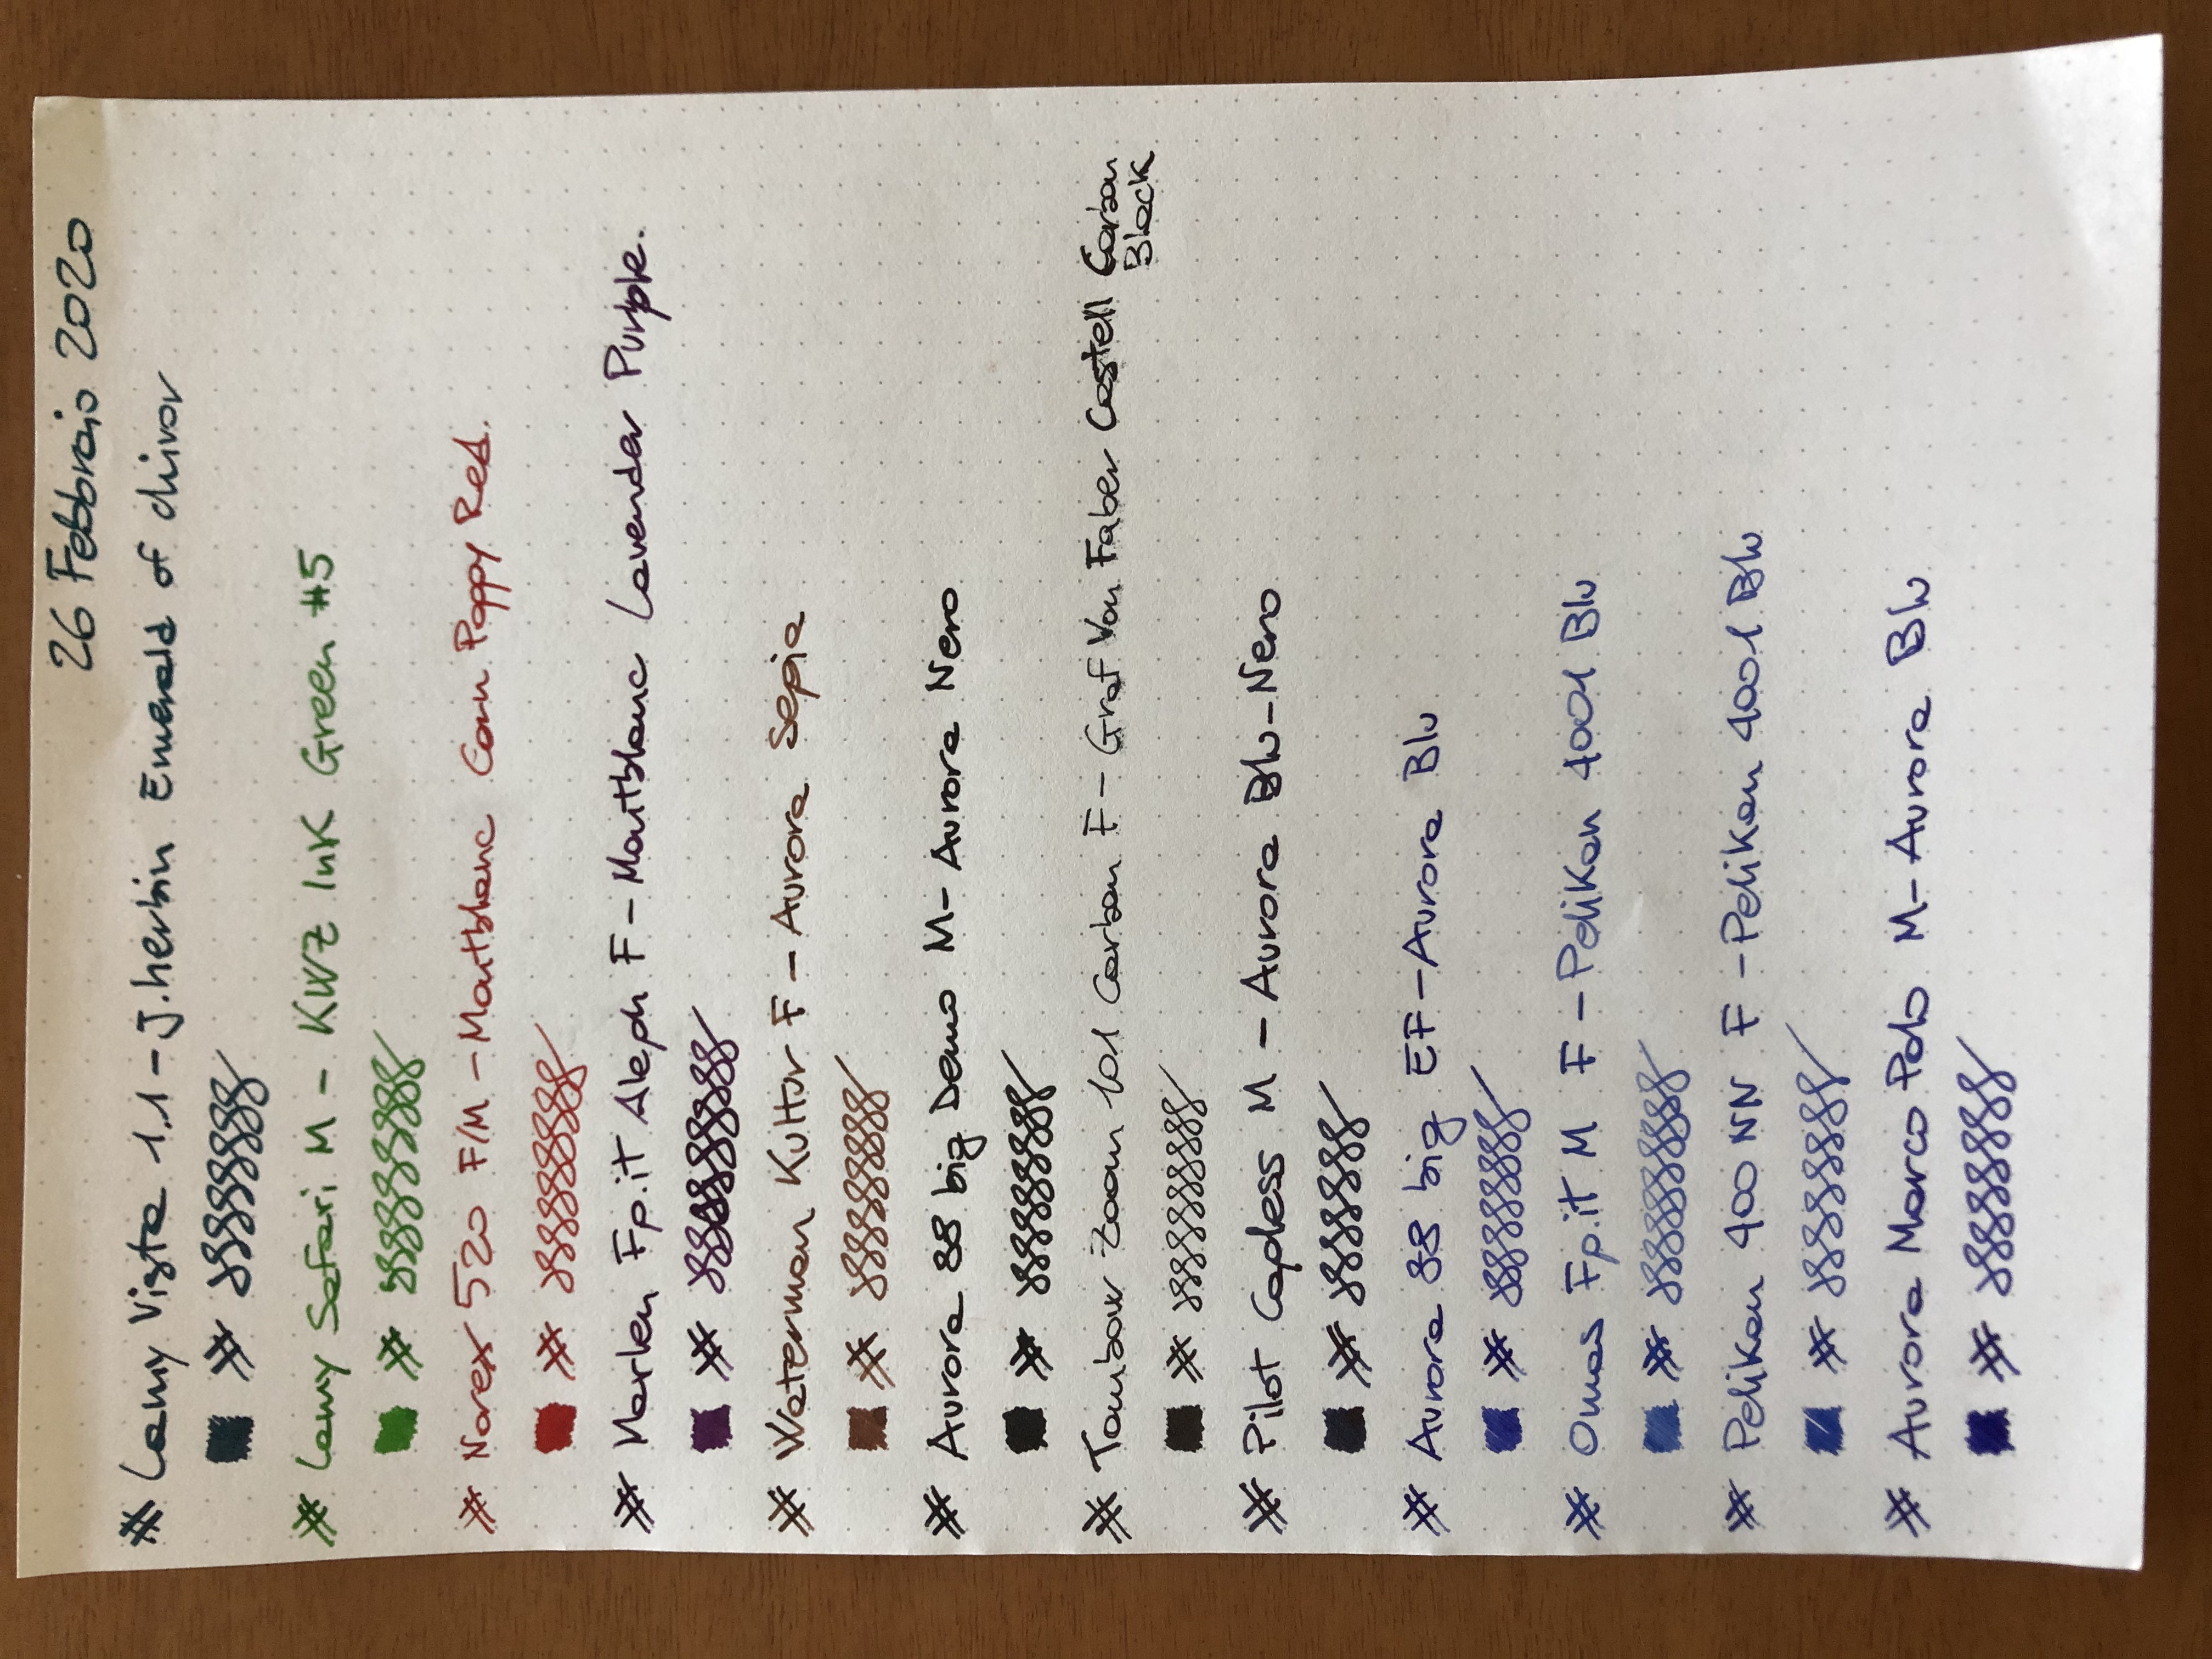 26 Febbraio 2020
# Lamy Vista 1,1 - J.herbin Emerald of chivor
#
# Lamy Safari M - KWZ Ink Green #5
#
# Norex 520 F/M - Montblanc Corn Poppy Red.
#
# Marlen Fp.it Aleph F - Montblanc Lavender Purple.
#
# Waterman Kultur F - Aurora Sepia
#
# Aurora 88 big Demo M - Aurora Nero
#
# Tombow Zoom 101 Carbon F - Graf Von Faber Castell Carbon
Black
#
# Pilot Capless M - Aurora Blu-Nero
#
# Aurora 88 big EF - Aurora Blu
#
# Omas Fp.it M F - Pelikan 4001 Blu
#
# Pelikan 400 NN F - Pelikan 4001 Blu
#
# Aurora Marco Polo M - Aurora Blu
#